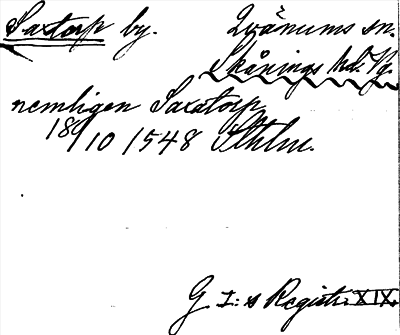 Saxtorp by. Qvänums sn.
Skånings hd. Vg.
nemligen Saxatorp
18/10 1548 Sthlm.
G I:s Registr. XIX.